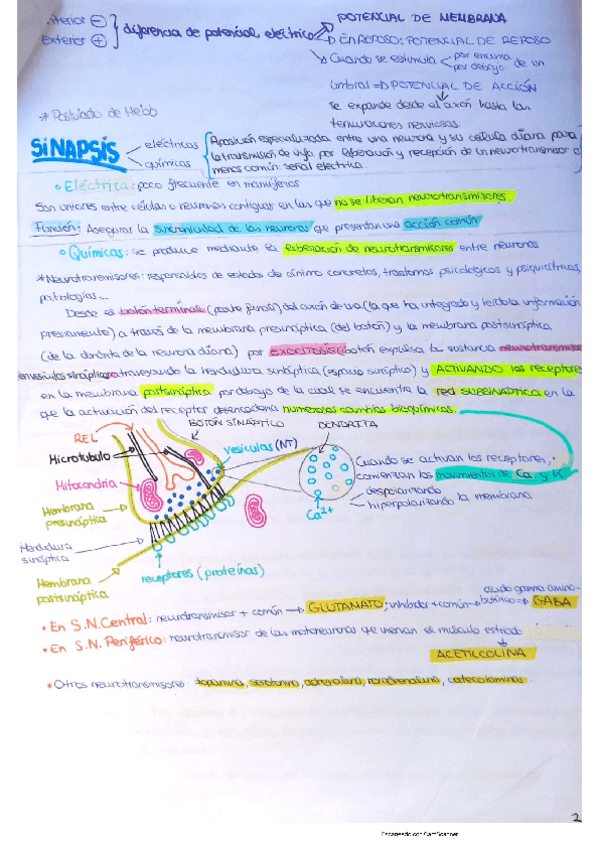 Interior ⊖
Exterior ⊕
diferencia de potencial eléctrico
POTENCIAL DE MEMBRANA
EN REPOSO: POTENCIAL DE REPOSO
Cuando se estimula
por encima
por debajo
de un
umbral ⇒ POTENCIAL DE ACCIÓN
se expande desde el axón hasta las
terminaciones nerviosas.
* Postulado de Hebb
SINAPSIS
eléctricas
químicas
Aposición especializada entre una neurona y su célula diana para
la transmisión de info por liberación y recepción de un neurotransmisor o
menos común: señal eléctrica.
• Eléctrica: poco frecuente en mamíferos
Son uniones entre células o neuronas contiguas en las que no se liberan neurotransmisores.
Función: Asegurar la sincronicidad de las neuronas que presentan una acción común
• Químicas: se produce mediante la liberación de neurotransmisores entre neuronas
*Neurotransmisores: responsables de estados de ánimo concretos, trastornos psicológicos y psiquiátricos,
patologías...
Desde el botón terminal (parte final) del axón de una (la que ha integrado y leído la información
previamente) a través de la membrana presináptica (del botón) y la membrana postsináptica
(de la dendrita de la neurona diana) por EXOCITOSIS (botón expulsa la sustancia neurotransmisor
en vesículas sinápticas atravesando la hendidura sináptica (espacio sináptico) y ACTIVANDO los receptores
en la membrana postsináptica por debajo de la cual se encuentra la red SUBSINÁPTICA en la
que la activación del receptor desencadena numerosos cambios bioquímicos.
BOTÓN SINÁPTICO
DENDRITA
REL
Vesículas (NT)
Microtubulo
Mitocondria
Membrana
presináptica
Hendidura
sináptica
Membrana
postsináptica
receptores (proteínas)
Ca2+
Cuando se activan los receptores,
comienzan los movimientos de Ca y K
despolarizando
hiperpolarizando la membrana
• En S.N.Central: neurotransmisor + común → GLUTAMATO; inhibidor + común →
ácido gamma amino-
butírico ⇒ GABA
• En S.N. Periférico: neurotransmisor de las motoneuronas que inervan el músculo estriado
ACETILCOLINA
• Otros neurotransmisores: dopamina, serotonina, adrenalina, noradrenalina, catecolaminas...
2
Escaneado con CamScanner